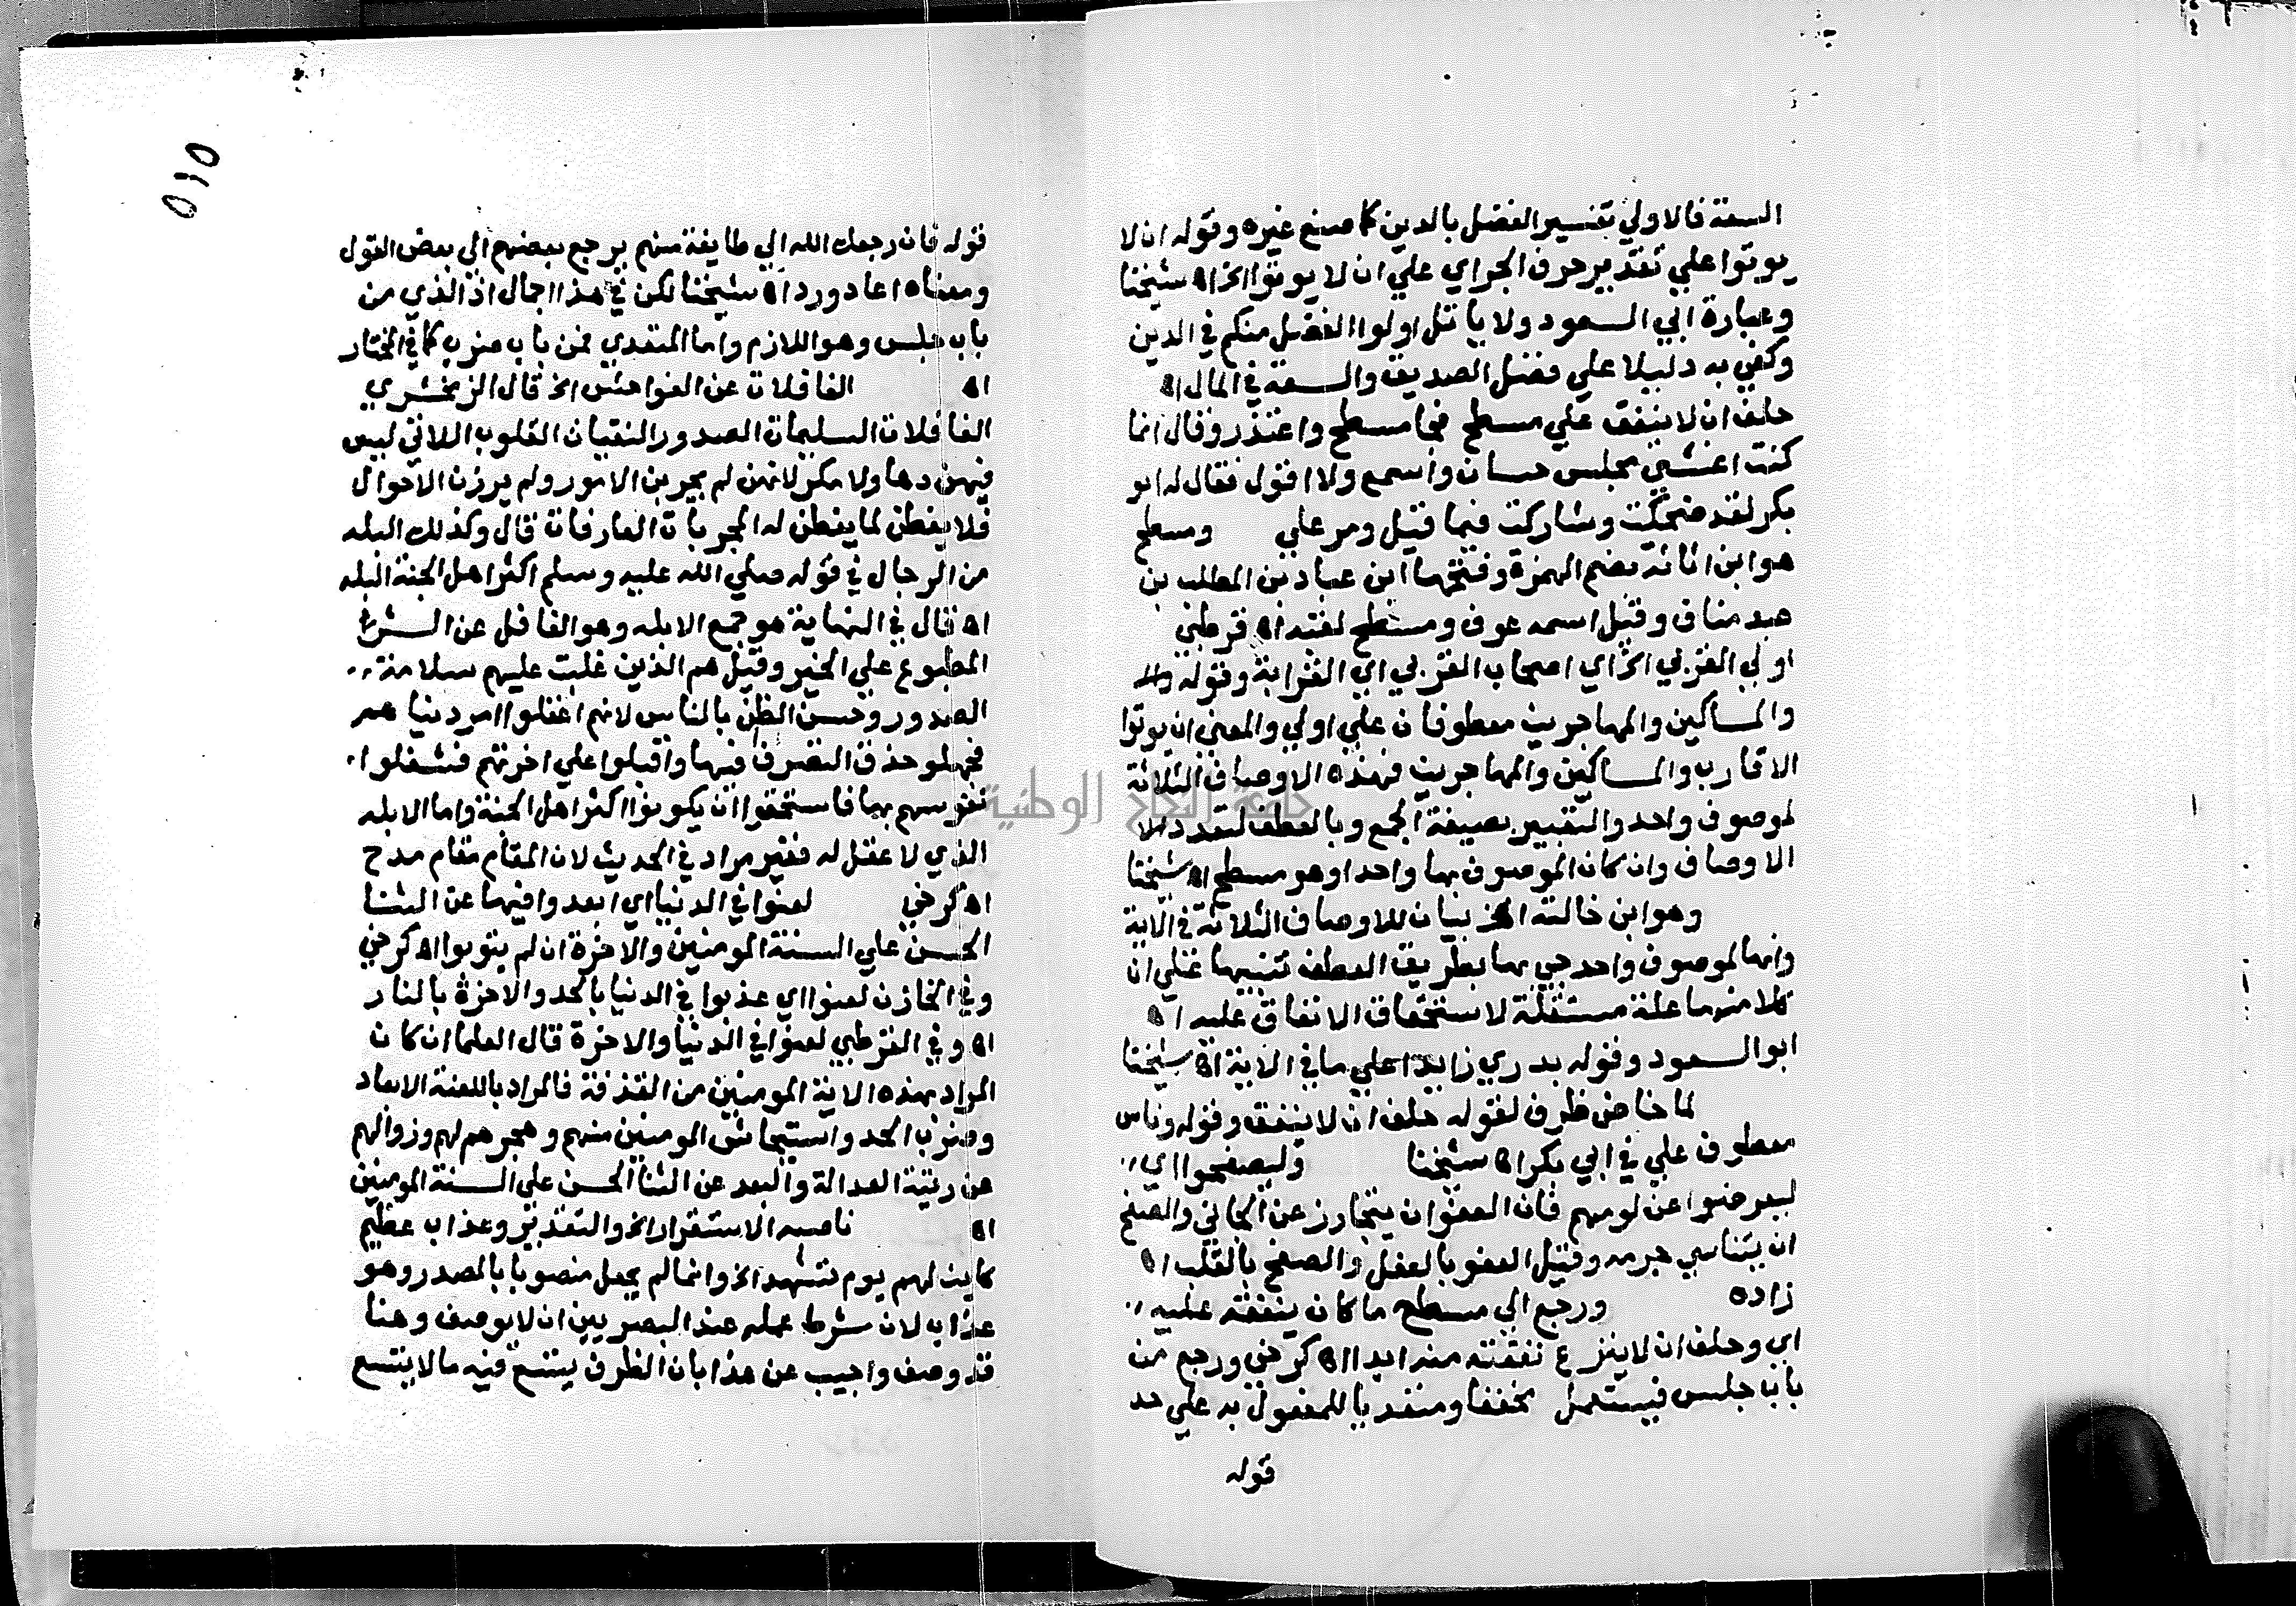 السعة فالاولي تفسير الفضل بالدين كما صنع غيره وقوله ان لا
يوتوا علي تقدير حرف الجر اي علي ان لا يوتوا الخ اه شيخنا
وعبارة ابي السعود ولا ياتل اولوا الفضل منكم في الدين
وكفي به دليلا علي فضل الصديق والسعة في المال اه
حلف ان لا ينفق علي مسطح فجا مسطح واعتذر وقال انما
كنت اغشي مجلس حسان واسمع ولا اقول فقال له ابو
بكر لقد ضحكت وشاركت فيما قيل ومر علي ومسطح
هو ابن اثاثة بضم الهمزة وفتحها ابن عباد بن المطلب بن
عبد مناف وقيل اسمه عوف ومسطح لقبه اه قرطبي
اولي القربي الخ اي اصحاب القربي اي القرابة وقوله
والمساكين والمهاجرين معطوفان علي اولي والمعني ان يوتوا
الاقارب والمساكين والمهاجرين فهذه الاوصاف الثلاثة
لموصوف واحد والتعبير بصيغة الجمع وبالعطف لتعدد
الاوصاف وان كان الموصوف بها واحدا وهو مسطح اه شيخنا
وهو ابن خالته الخ بيان للاوصاف الثلاثة في الاية
وانها لموصوف واحد جي بها بطريق العطف تنبيها علي ان
كلا منها علة مستقلة لاستحقاق الانفاق عليه اه
ابو السعود وقوله بدري زايد اعلي ما في الاية اه شيخنا
لما خاض ظرف لقوله حلف ان لا ينفق وقوله وناس
معطوف علي في ابي بكر اه شيخنا وليصفحوا اي
ليعرضوا عن لومهم فان العفو ان يتجاوز عن الجاني والصفح
ان يتناسي جرمه وقيل العفو بالفعل والصفح بالقلب اه
زاده ورجع الي مسطح ما كان ينفقه عليه
اي وحلف ان لا ينزع نفقته منه ابدا اه كرخي ورجع من
باب جلس فيستعمل مخففا ومتعديا للمفعول به علي حد
قوله
٥٢٥
قوله فان رجعك الله الي طايفة منهم يرجع بعضهم الي بعض القول
ومعناه اعاد ورد اه شيخنا لكن في هذا اجمال اذ الذي من
باب جلس وهو اللازم واما المتعدي فمن باب ضرب كما في المختار
اه الغافلات عن الفواحش الخ قال الزمخشري
الغافلات السليمات الصدور النقيات القلوب اللاتي ليس
فيهن دها ولا مكر لانهن لم يجربن الامور ولم يرزن الاحوال
فلا يفطن لما يفطن له المجربات العارفات قال وكذلك البله
من الرجال في قوله صلي الله عليه وسلم اكثر اهل الجنة البله
اه قال في النهاية هو جمع الابله وهو الغافل عن الشر
المطبوع علي الخير وقيل هم الذين غلبت عليهم سلامة
الصدور وحسن الظن بالناس لانهم اغفلوا امر دنياهم
فجهلوا حذق التصرف فيها واقبلوا علي اخرتهم فشغلوا
نفوسهم بها فاستحقوا ان يكونوا اكثر اهل الجنة واما الابله
الذي لا عقل له فغير مراد في الحديث لان المقام مقام مدح
اه كرخي لعنوا في الدنيا اي ابعدوا فيها عن الثنا
الحسن علي السنة المومنين والاخرة ان لم يتوبوا اه كرخي
وفي الخازن لعنوا اي عذبوا في الدنيا بالحد والاخرة بالنار
اه وفي القرطبي لعنوا في الدنيا والاخرة قال العلما ان كان
المراد بهذه الاية المومنين من القذفة فالمراد باللعنة الابعاد
وضرب الحد واستيحاش المومنين منهم وهجرهم لهم وزوالهم
عن رتبة العدالة والبعد عن الثنا الحسن علي السنة المومنين
اه ناصبه الاستقرار الخ والتقدير وعذاب عظيم
كاين لهم يوم تشهد الخ وانما لم يجعل منصوبا بالمصدر وهو
عذاب لان شرط عمله عند البصريين ان لا يوصف وهنا
قد وصف واجيب عن هذا بان الظرف يتسع فيه ما لا يتسع
جامعة النجاح الوطنية